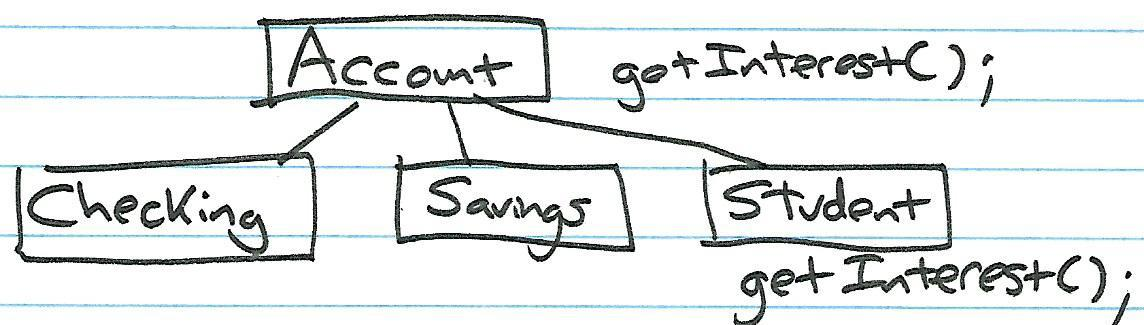 Account getInterest();
Checking Savings Student
getInterest();